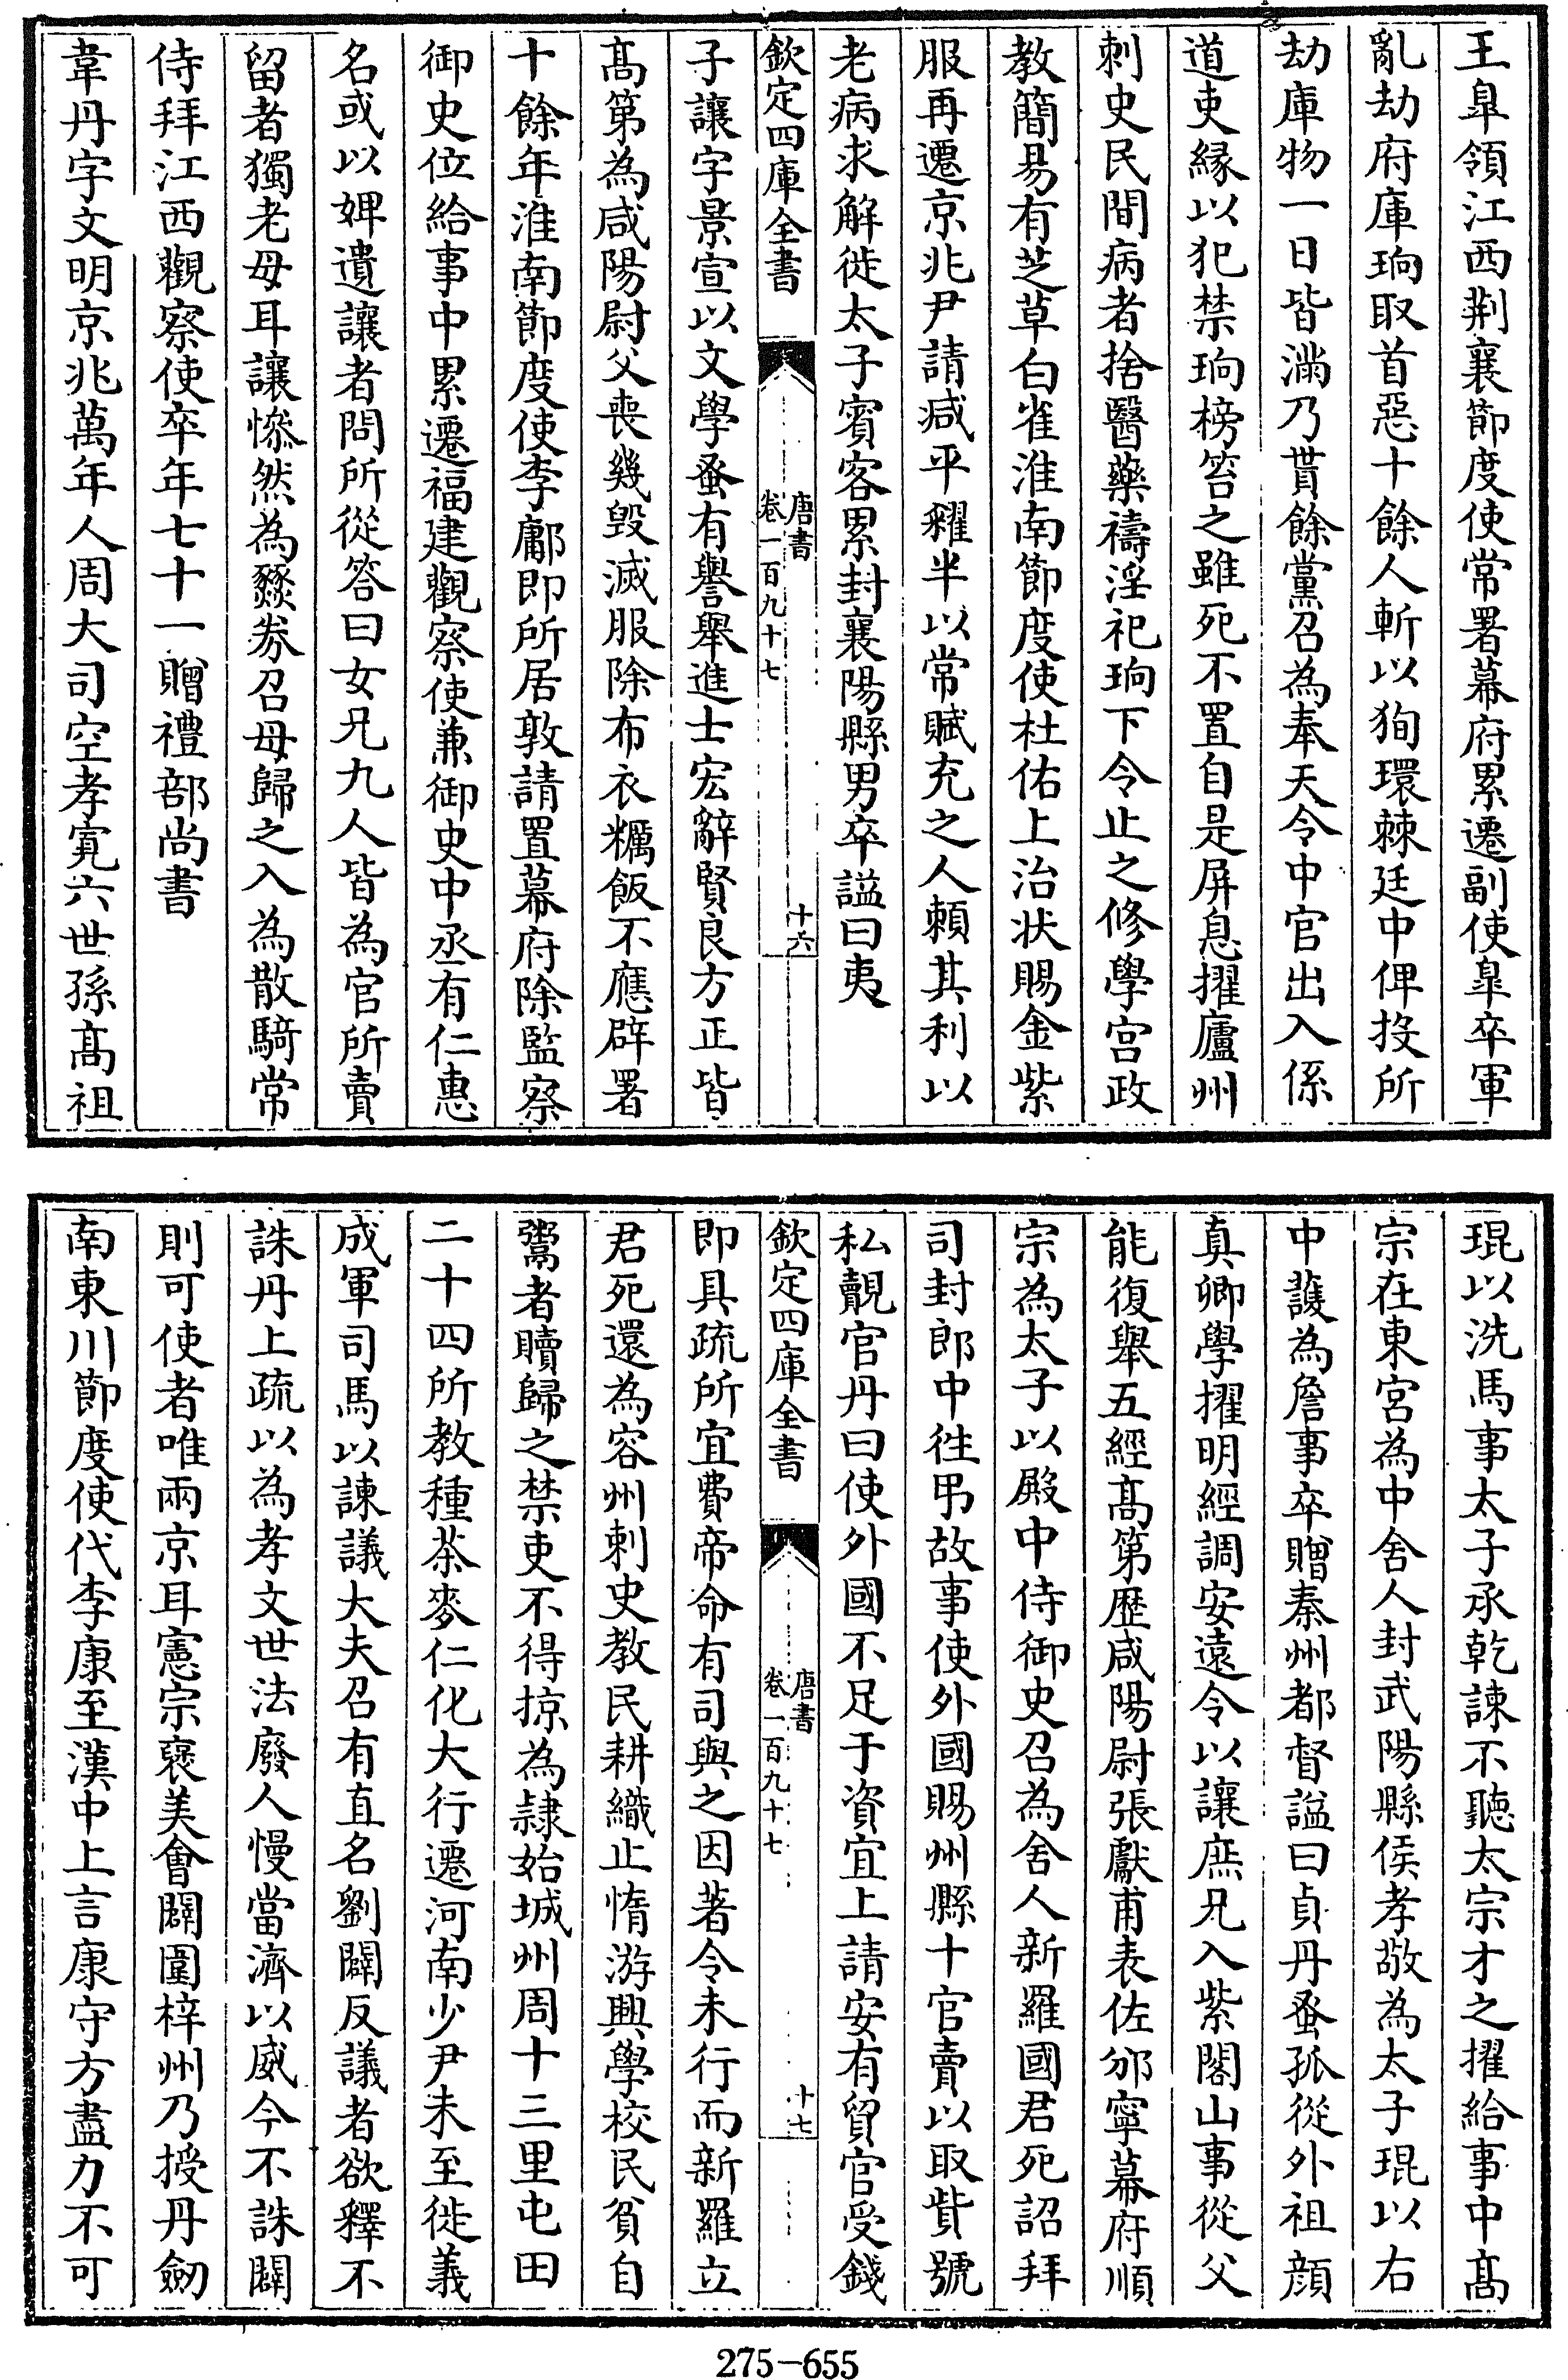 王臯領江西荆襄節度使常署幕府累遷副使臯卒軍
亂劫府庫珦取首惡十餘人斬以狥環棘廷中俾投所
劫庫物一日皆滿乃貰餘黨召為奉天令中官出入係
道吏縁以犯禁珦榜笞之雖死不置自是屏息擢廬州
刺史民間病者捨醫藥禱淫祀珦下令止之修學宫政
教簡易有芝草白雀淮南節度使杜佑上治状賜金紫
服再遷京兆尹請減平糴半以常賦充之人賴其利以
老病求解徙太子賓客累封襄陽縣男卒諡曰夷
欽定四庫全書
唐書
卷一百九十七
十六
子讓字景宣以文學蚤有譽舉進士宏辭賢良方正皆
髙第為咸陽尉父喪幾毁滅服除布衣糲飯不應辟署
十餘年淮南節度使李鄘即所居敦請置幕府除監察
御史位給事中累遷福建觀察使兼御史中丞有仁惠
名或以婢遺讓者問所從答曰女兄九人皆為官所賣
留者獨老母耳讓慘然為燬券召母歸之入為散騎常
侍拜江西觀察使卒年七十一贈禮部尚書
韋丹字文明京兆萬年人周大司空孝寛六世孫髙祖
琨以洗馬事太子承乾諫不聽太宗才之擢給事中髙
宗在東宮為中舍人封武陽縣侯孝敬為太子琨以右
中護為詹事卒贈秦州都督諡曰貞丹蚤孤從外祖顔
真卿學擢明經調安遠令以讓庶兄入紫閣山事從父
能復舉五經髙第歴咸陽尉張獻甫表佐邠寧幕府順
宗為太子以殿中侍御史召為舍人新羅國君死詔拜
司封郎中往弔故事使外國賜州縣十官賣以取貲號
私覿官丹曰使外國不足于資宜上請安有貿官受錢
欽定四庫全書
唐書
卷一百九十七
十七
即具疏所宜費帝命有司與之因著令未行而新羅立
君死還為容州刺史教民耕織止惰游興學校民貧自
鬻者贖歸之禁吏不得掠為隷始城州周十三里屯田
二十四所教種茶麥仁化大行遷河南少尹未至徙義
成軍司馬以諫議大夫召有直名劉闢反議者欲釋不
誅丹上疏以為孝文世法廢人慢當濟以威今不誅闢
則可使者唯兩京耳憲宗褒美會闢圍梓州乃授丹劒
南東川節度使代李康至漢中上言康守方盡力不可
275-655